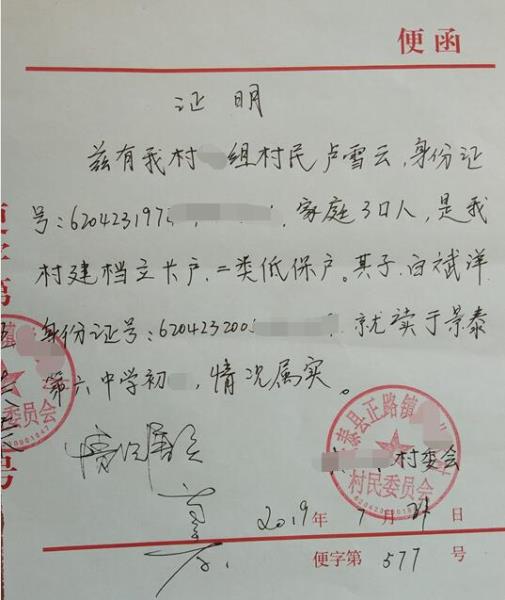 便函
证明
兹有我村 组村民卢雪云,身份证
号:620423197 ,家庭3口人,是我
村建档立卡户、二类低保户。其子,白斌洋
身份证号:620423200 就读于景泰
第六中学初 ,情况属实。
情况属实
泰县正路镇
村委会
村民委员会
6204230001047
委员会
2019年7月 日
便字第577号